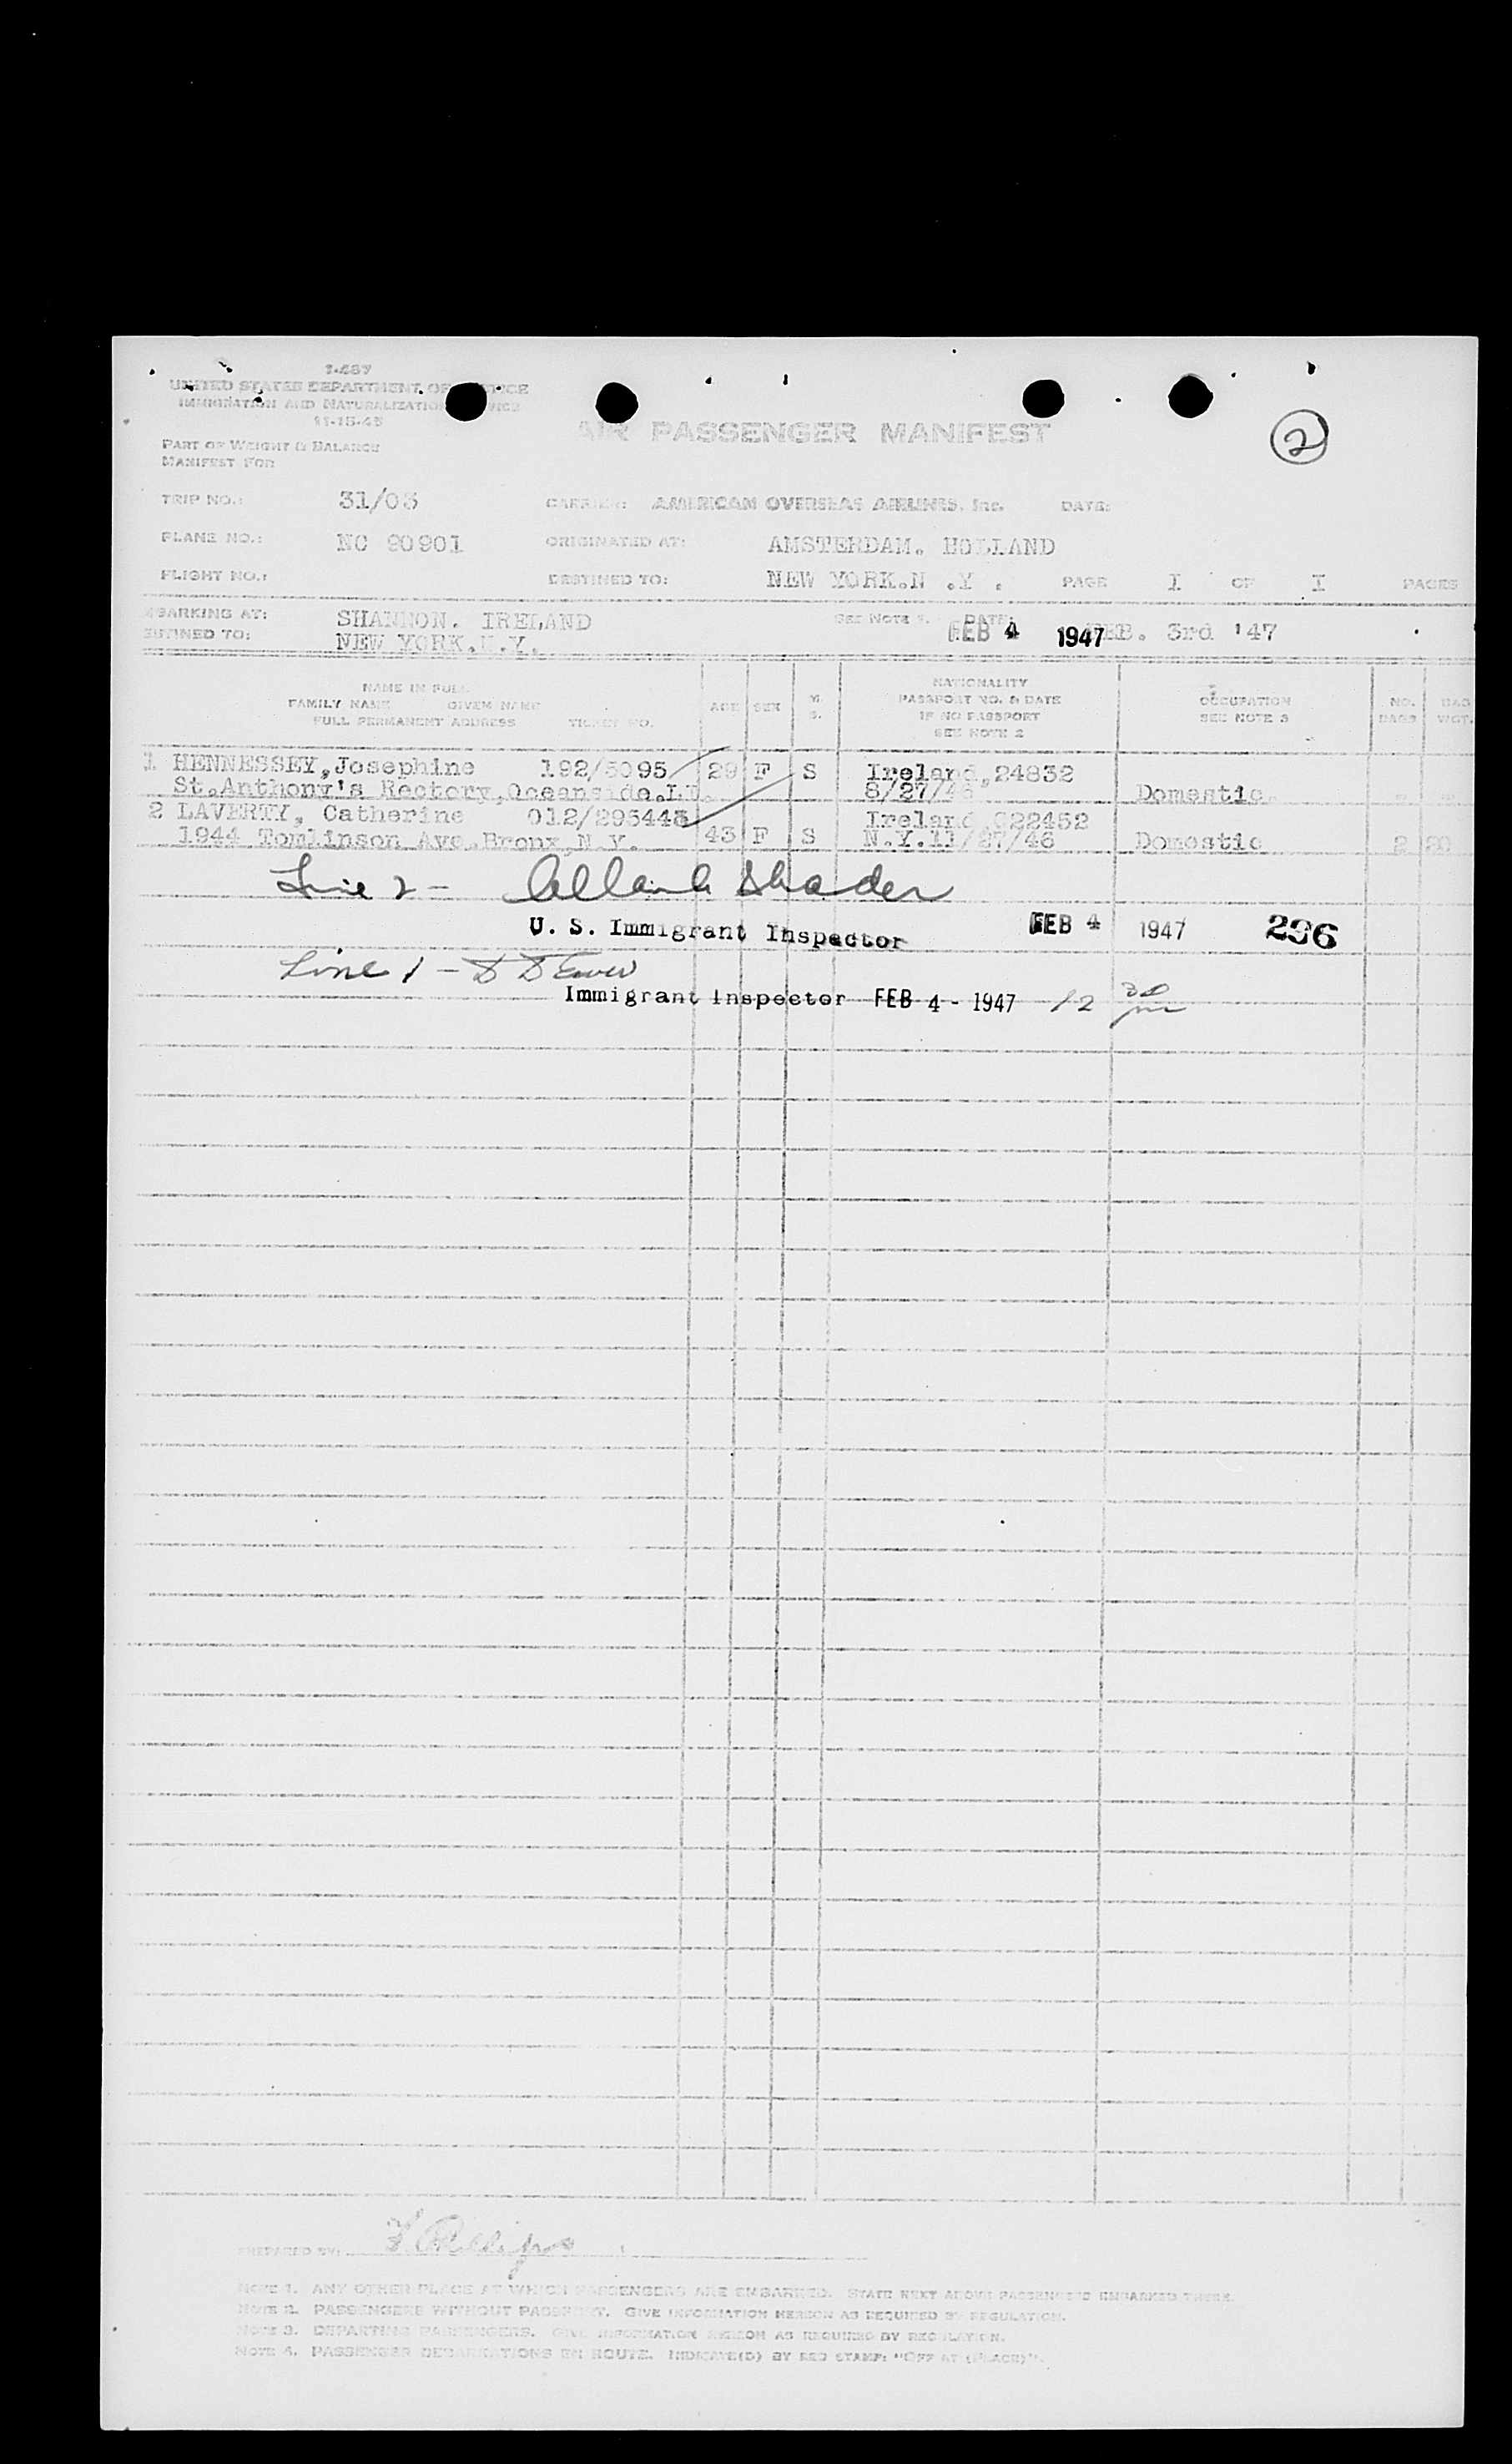 I-467
UNITED STATES DEPARTMENT OF JUSTICE
IMMIGRATION AND NATURALIZATION SERVICE
11-15-45
AIR PASSENGER MANIFEST
2
PART OF WEIGHT & BALANCE
MANIFEST FOR
TRIP NO.: 31/03 CARRIER: AMERICAN OVERSEAS AIRLINES, Inc. DATE:
PLANE NO.: NC 90901 ORIGINATED AT: AMSTERDAM. HOLLAND
FLIGHT NO.: DESTINED TO: NEW YORK.N .Y . PAGE I OF I PAGES
EMBARKING AT: SHANNON. IRELAND SEE NOTE 1. DATE: FEB. 3rd '47
DESTINED TO: NEW YORK.N.Y. FEB 4 1947
NAME IN FULL
FAMILY NAME GIVEN NAME
FULL PERMANENT ADDRESS TICKET NO.
AGE SEX M. S.
NATIONALITY
PASSPORT NO. & DATE
IF NO PASSPORT
SEE NOTE 2
OCCUPATION
SEE NOTE 3
NO. BAGS BAG WGT.
1 HENNESSEY,Josephine 192/5095 29 F S Ireland,24832
St.Anthony's Rectory,Oceanside.L.I. 8/27/46 Domestic.
2 LAVERTY, Catherine 012/295443 Ireland C22452
1944 Tomlinson Ave.Bronx,N.Y. 43 F S N.Y.11/27/46 Domestic 2 20
Line 2 - Shader
U. S. Immigrant Inspector FEB 4 1947 236
Line 1 -
Immigrant Inspector FEB 4 - 1947 12 30 pm
PREPARED BY:
NOTE 1. ANY OTHER PLACE AT WHICH PASSENGERS ARE EMBARKED. STATE NEXT ABOVE PASSENGERS EMBARKED THERE.
NOTE 2. PASSENGERS WITHOUT PASSPORT. GIVE INFORMATION HEREON AS REQUIRED BY REGULATION.
NOTE 3. DEPARTING PASSENGERS. GIVE INFORMATION HEREON AS REQUIRED BY REGULATION.
NOTE 4. PASSENGER DEBARKATIONS EN ROUTE. INDICATE(D) BY RED STAMP: "OFF AT (PLACE)".